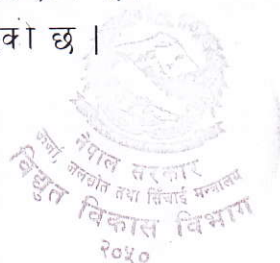 को छ |
नेपाल सरकार
ऊर्जा, जलस्रोत तथा सिंचाई मन्त्रालय
विद्युत विकास विभाग
२०५०